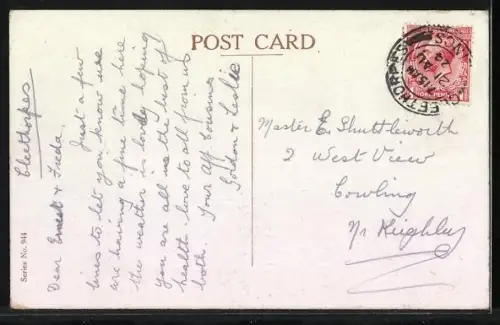 POST CARD
Cleethorpes
Dear Ernest & Freda.
Just a few
lines to let you know we
are having a fine time here
the weather is lovely hoping
you are all in the best of
health - love to all from us
both.
Your Aff Cousins
Gordon & Leslie
Series No. 944
CLEETHORPES
7 15 AM
21 AU
24
LINCS
ONE PENNY
Master E. Shuttleworth
2 West View
Cowling
Nr Keighley